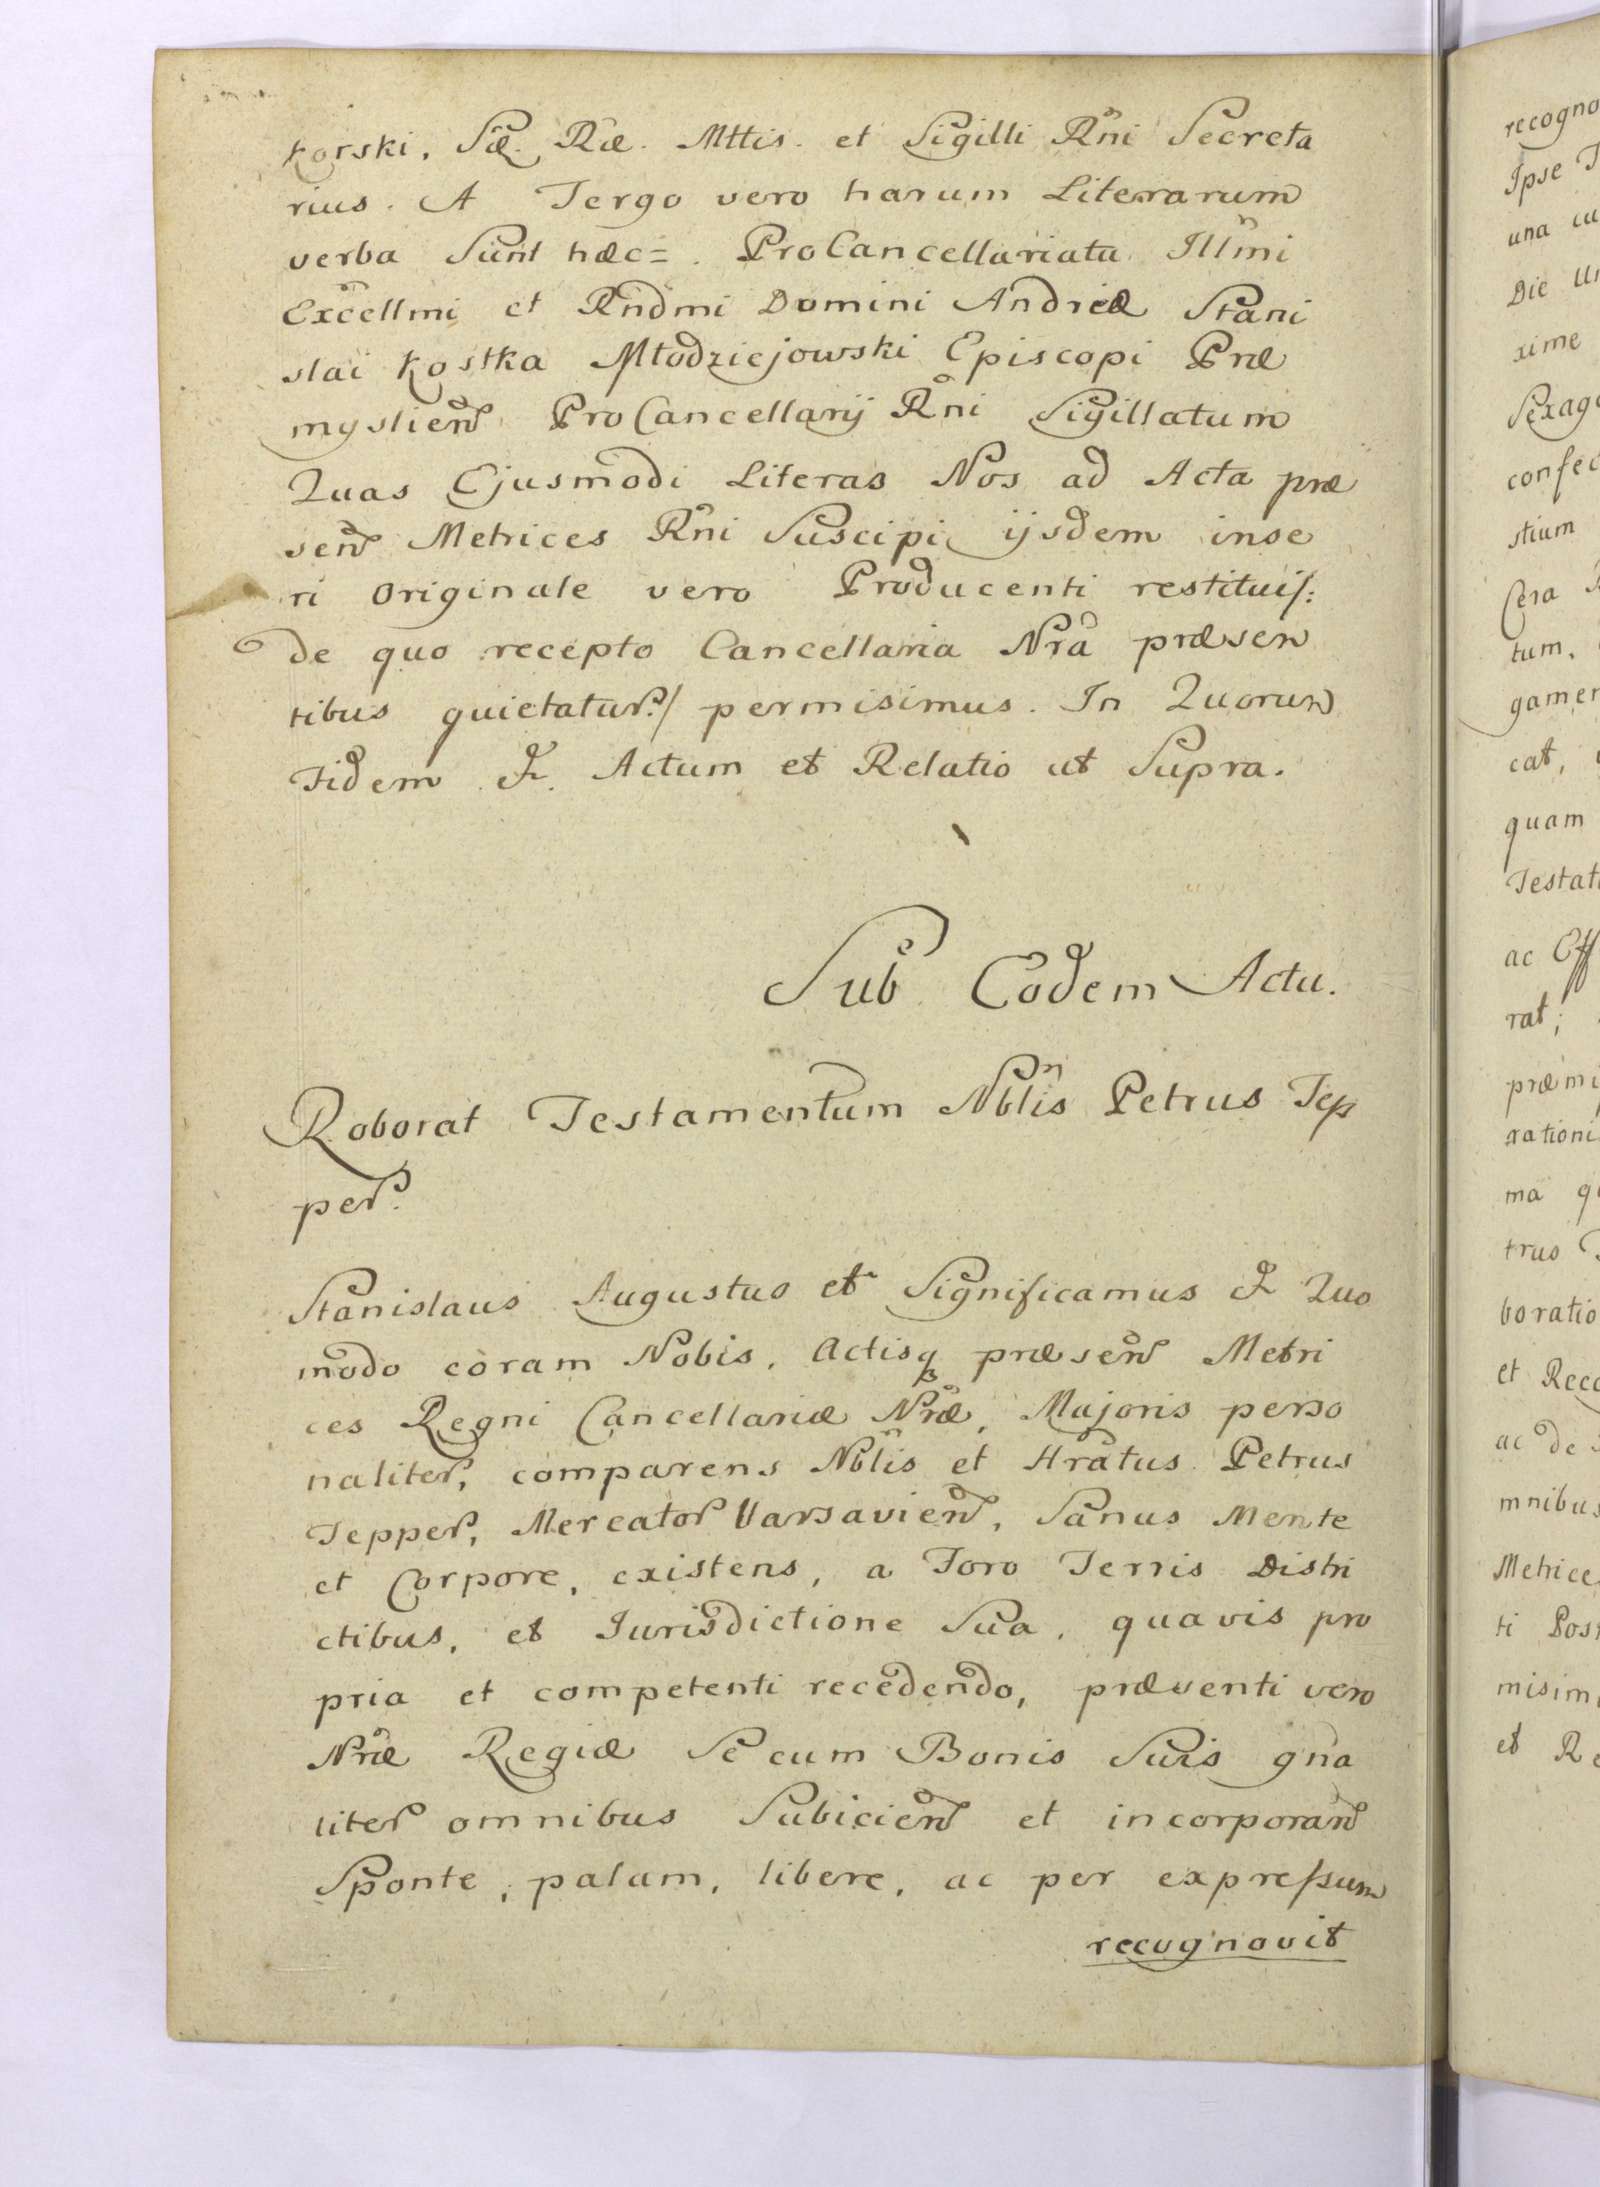 korski, Sæ. Ræ. Mttis. et Sigilli Rñi Secreta
rius. A Tergo vero harum Literarum
verba Sunt hæc=. ProCancellariatu Illm̃i
Excellm̃i et Rñdmi Domini Andreæ Stani
slai Kostka Młodziejowski Episcopi Præ
myslien̄ ProCancellarij Rñi Sigillatum
Quas Ejusmodi Literas Nos ad Acta præ
sen̄ Metrices Rñi Suscipi ijsdem inse
ri originale vero Producenti restitui/:
de quo recepto Cancellaria Nrã præsen
tibus quietatur:/ permisimus. In Quorum
Fidem &. Actum et Relatio ut Supra.
Sub Eodem Actu.
Roborat Testamentum Nblis̃ Petrus Tep
per.
Stanislaus Augustus et Significamus & Quo
modo coram Nobis, Actisq præsen̄ Metri
ces Regni Cancellariæ Nræ̃, Majoris perso
naliter, comparens Nblis̃ et Hrãtus Petrus
Tepper, Mercator Varsavien̄, Sanus Mente
et Corpore, existens, a Foro Terris Distri
ctibus, et Jurisdictione Sua, quavis pro
pria et competenti recedendo, præsenti vero
Nræ̃ Regiæ Se cum Bonis Suis gña
liter omnibus Subicien̄ et incorporan̄
Sponte, palam, libere, ac per expressum
recognovit
recogno
Ipse T
una cu
Die
xime
Sexag
confec
stium
Cera
tum,
gamen
cat,
quam
Testat
ac Eff
rat;
præmi
rationi
ma
trus
boratio
et Reco
ac de
mnibus
Metrice
ti Pos
misim
et Re